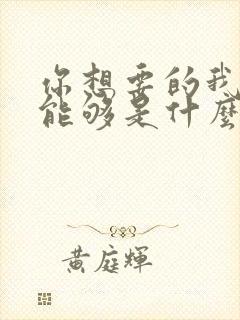 你想要的我
能够是什麼
黄庭輝